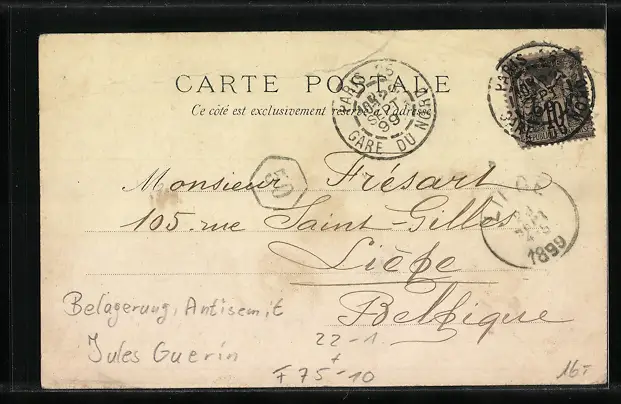 CARTE POSTALE
Ce côté est exclusivement réservé à l'adresse
PARIS 13
SEPT
99
GARE DU NORD
PARIS 13
SEPT
GARE DU NORD
10
50
Monsieur Frésart
105. rue Saint-Gilles
Liège
Belgique
1899
Belagerung, Antisemit
Jules Guerin
22-1
+
F 75-10
16,-